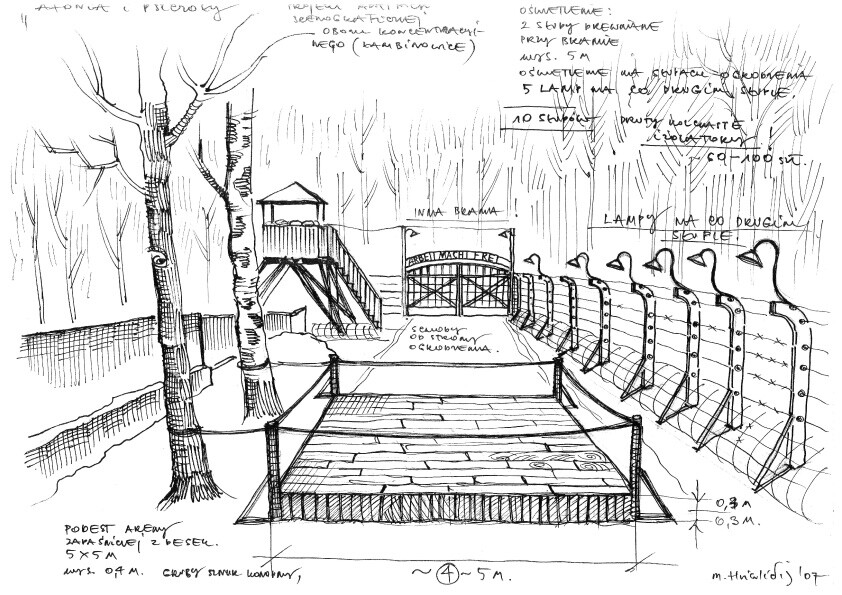 PROJEKT ADAPTACJI
SCENOGRAFICZNEJ
OBOZU KONCENTRACYJ-
NEGO (ŁAMBINOWICE)
OŚWIETLENIE:
2 SŁUPY DREWNIANE
PRZY BRAMIE
WYS. 5 M
OŚWIETLENIE NA SŁUPACH OGRODZENIA
5 LAMP NA CO DRUGIM SŁUPIE.
10 SŁUPÓW DRUTY KOLCZASTE
IZOLATORKI !
~ 60-100 SZT.
INNA BRAMA
LAMPY NA CO DRUGIM
SŁUPIE.
ARBEIT MACHT FREI
SCHODY
OD STRONY
OGRODZENIA.
0,3 M.
PODEST ARENY
ZAPAŚNICZEJ Z DESEK.
5 X 5 M
WYS. 0,4 M. GRUBY SZNUR KONOPNY,
~ 4 ~ 5 M.
'07